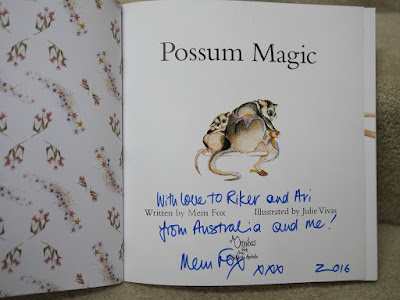 Possum Magic
With love to Riker and Ari
Written by Mem Fox Illustrated by Julie Vivas
from Australia and me!
Omnibus
Mem Fox xxx 2016